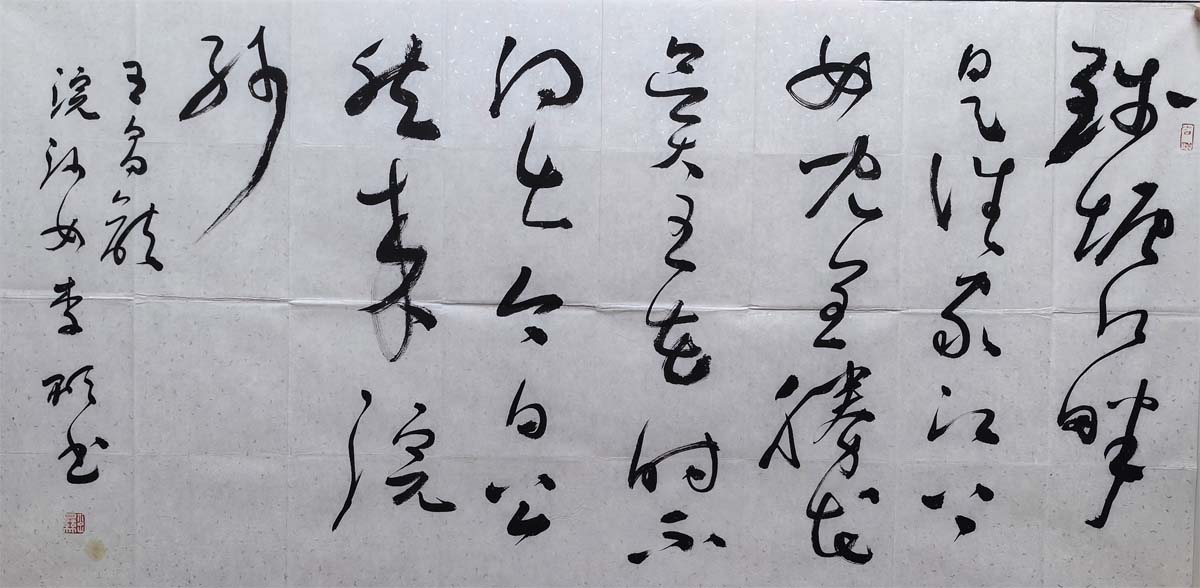 錢塘江畔
是誰家江上
女兒全勝花
吳王在时不
得出今日公
然来浣
紗
王昌龄
浣沙女李书